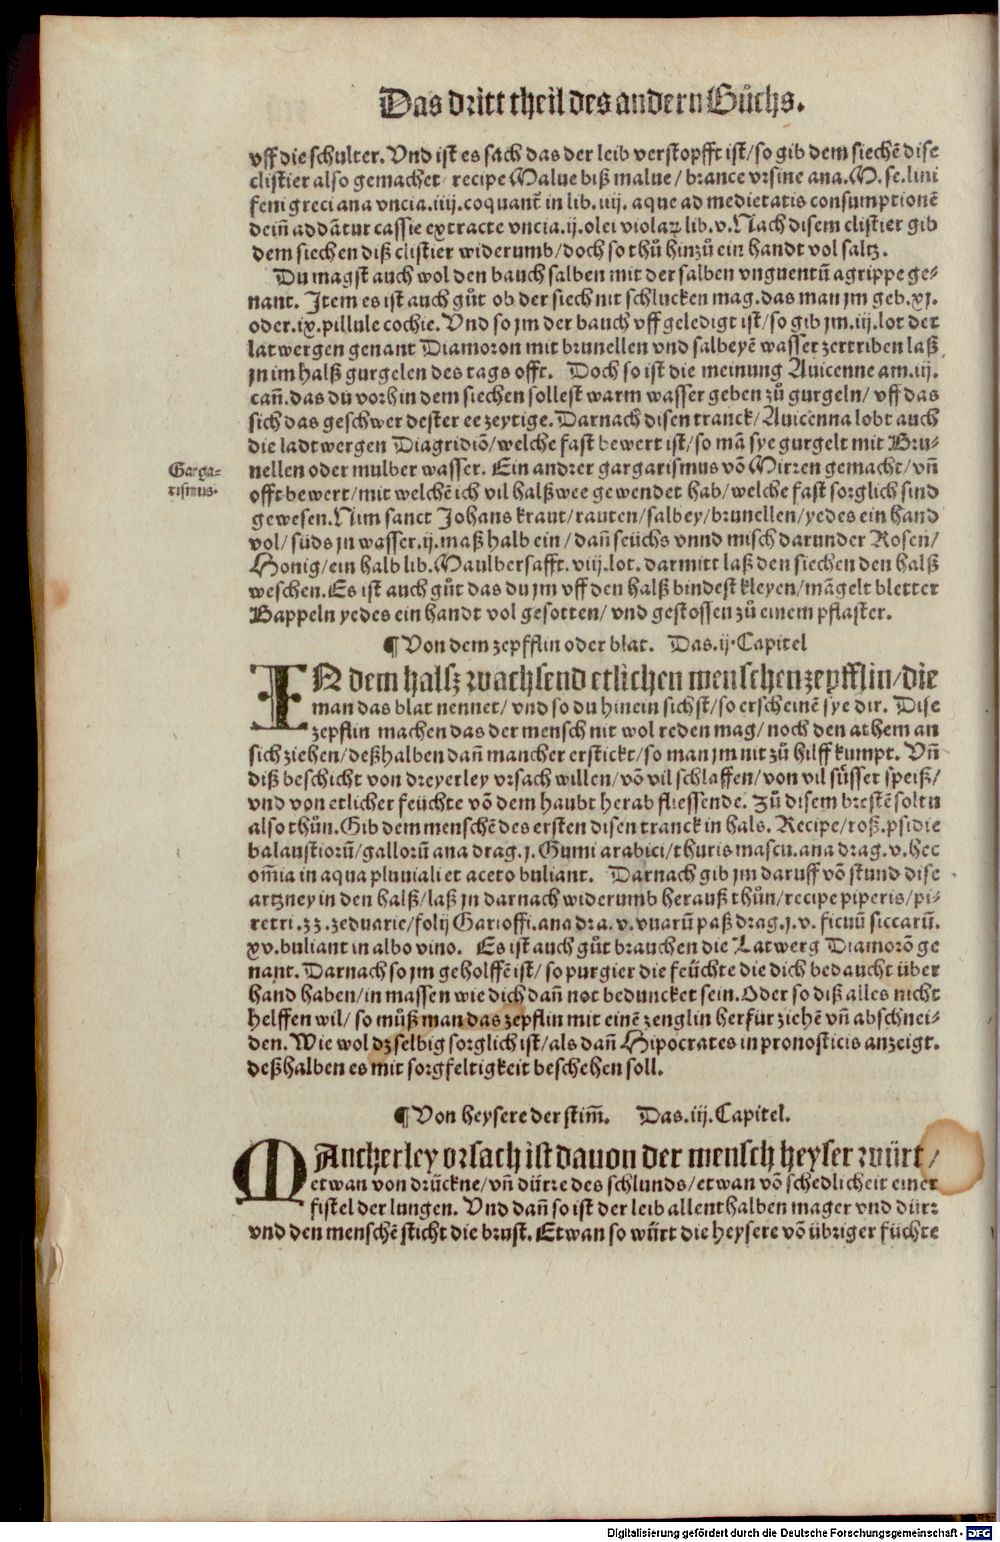 Das dritt theil des andern Bůchs.
vff die schulter. Vnd ist es sach das der leib verstopfft ist/ so gib dem siechē dise
clistier also gemachet recipe Malue biß malue/ brance vrsine ana. M. se. lini
feni greci ana vncia. iiij. coquant̄ in lib. iiij. aque ad medietatis consumptionē
dein̄ addātur cassie extracte vncia. ij. olei violaꝝ lib. v. Nach disem clistier gib
dem siechen diß clistier widerumb/ doch so thů hinzů ein handt vol saltz.
Du magst auch wol den bauch salben mit der salben vnguentū agrippe ge-
nant. Item es ist auch gůt ob der siech nit schlucken mag. das man jm geb. xj.
oder. ix. pillule cochie. Vnd so jm der bauch vff geledigt ist/ so gib jm. iij. lot der
latwergen genant Diamoron mit brunellen vnd salbeyē wasser zertriben laß
jn im halß gurgelen des tags offt. Doch so ist die meinung Auicenne am. iij.
can̄. das du vorhin dem siechen sollest warm wasser geben zů gurgeln/ vff das
sich das geschwer dester ee zeytige. Darnach disen tranck/ Auicenna lobt auch
die ladtwergen Diagridiō/ welche fast bewert ist/ so mā sye gurgelt mit Bru-
nellen oder mulber wasser. Ein andrer gargarismus vō Mirren gemacht/ vn̄
Garga-
rismus.
offt bewert/ mit welchē ich vil halßwee gewendet hab/ welche fast sorglich sind
gewesen. Nim sanct Johans kraut/ rauten/ salbey/ brunellen/ yedes ein hand
vol/ süds jn wasser. ij. maß halb ein/ dan̄ seüchs vnnd misch darunder Rosen/
Honig/ ein halb lib. Maulbersafft. viij. lot. darmitt laß den siechen den halß
weschen. Es ist auch gůt das du jm vff den halß bindest kleyen/ māgelt bletter
Bappeln yedes ein handt vol gesotten/ vnd gestossen zů einem pflaster.
¶ Von dem zepfflin oder blat. Das. ij. Capitel
IN dem halsz wachsend etlichen menschen zepfflin/ die
man das blat nennet/ vnd so du hinein sichst/ so erscheinē sye dir. Dise
zepflin machen das der mensch nit wol reden mag/ noch den athem an
sich ziehen/ deßhalben dan̄ mancher erstickt/ so man jm nit zů hilff kumpt. Vn̄
diß beschicht von dreyerley vrsach willen/ vō vil schlaffen/ von vil süsser speiß/
vnd von etlicher feüchte vō dem haubt herab fliessende. Zů disem brestē soltu
also thůn. Gib dem menschē des ersten disen tranck in hals. Recipe/ roß. psidie
balaustiorū/ gallorū ana drag. j. Gumi arabici/ thuris mascu. ana drag. v. hec
om̄ia in aqua pluuiali et aceto buliant. Darnach gib jm daruff vō stund dise
artzney in den halß/ laß jn darnach widerumb herauß thůn/ recipe piperis/ pi-
retri. zz. zeduarie/ folij Garioffi. ana dra. v. vuarū paß drag. j. v. ficuū siccarū.
xv. buliant in albo vino. Es ist auch gůt brauchen die Latwerg Diamorō ge
nant. Darnach so jm geholffē ist/ so purgier die feüchte die dich bedaucht über
hand haben/ in massen wie dich dan̄ not beduncket sein. Oder so diß alles nicht
helffen wil/ so můß man das zepflin mit einē zenglin herfür ziehē vn̄ abschnei-
den. Wie wol dz selbig sorglich ist/ als dan̄ Hipocrates in pronosticis anzeigt.
deßhalben es mit sorgfeltigkeit beschehen soll.
¶ Von heysere der stim̄. Das. iij. Capitel.
MAncherley vrsach ist dauon der mensch heyser würt/
etwan von drückne/ vn̄ dürre des schlunds/ etwan vō schedlicheit einer
fistel der lungen. Vnd dan̄ so ist der leib allenthalben mager vnd dürr
vnd den menschē sticht die brust. Etwan so würt die heysere vō übriger füchte
Digitalisierung gefördert durch die Deutsche Forschungsgemeinschaft - DFG